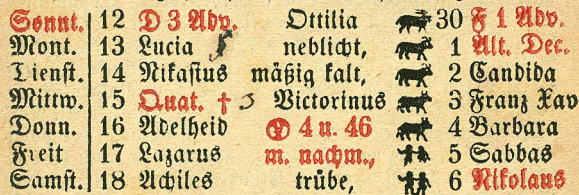 Sonnt. 12 D 3 Adv. Ottilia 30 F 1 Adv.
Mont. 13 Lucia neblicht, 1 Alt. Dec.
Dienst. 14 Nikasius mäßig kalt, 2 Candida
Mittw. 15 Quat. † Victorinus 3 Franz Xav
Donn. 16 Adelheid 4 u. 46 4 Barbara
Freit 17 Lazarus m. nachm., 5 Sabbas
Samst. 18 Achiles trübe, 6 Nikolaus